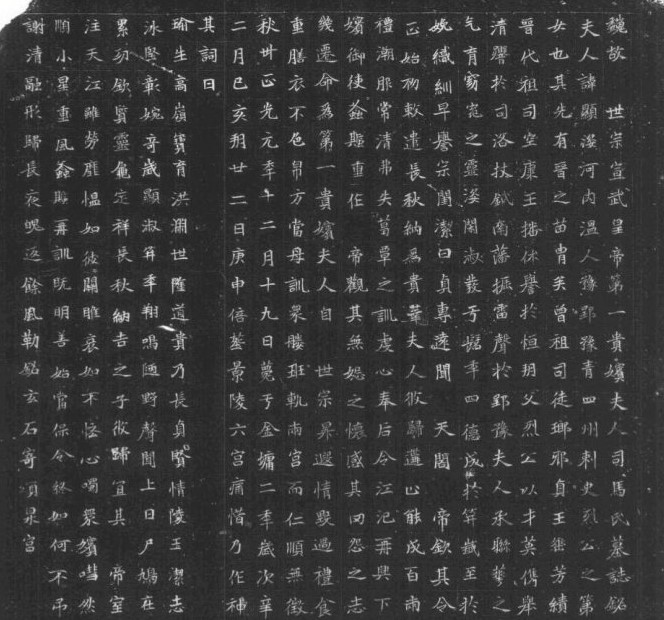 魏故 世宗宣武皇帝第一貴嬪夫人司馬氏墓誌銘
夫人諱顯姿河內溫人豫郢豫青四州刺史烈公之第三
女也其先有晉之苗胄矣曾祖司徒琅邪貞王垂芳績於
晉代祖司空康王播休譽於恒朔父烈公以才英儁舉流
清響於司洛杖鉞南藩振雷聲於郢豫夫人承聯華之妙
氣育窈窕之靈姿閑淑發于髫年四德成於笄歲至於婉
娩織紝早譽宗閨潔白貞專遠聞 天閣 帝欽其令問
正始初敕遣長秋納為貴華夫人攸歸遘止能成百兩之
禮潮服常清弗失葛覃之訓虔心奉后令江汜再興下撫
嬪御使螽斯重作 帝觀其無妬之懷感其罔怨之志未
幾遷命為第一貴嬪夫人自 世宗昇遐情毀過禮食不
重膳衣不色帛方當母訓衆媵班軌兩宮而仁順無徵春
秋卅正光元年十二月十九日薨于金墉二年歲次辛丑
二月己亥朔廿二日庚申倍葬景陵六宮痛惜乃作神銘
其詞曰
瑜生高嶺寶育洪淵世隆道貴乃長貞賢情陵玉潔志
冰堅彰婉奇歲顯淑笄年翔鳴陋野聲聞上日尸鳩在
累功欽賢靈龜定祥長秋納吉之子攸歸宜其帝室
汪天江雖勞靡慍如彼關雎哀如不怪心喝衆嬪嗜然
順小星重風螽斯再訓既明善始當保令終如何不弔
謝清融形歸長夜魄返餘風勒銘玄石寄頌泉宮